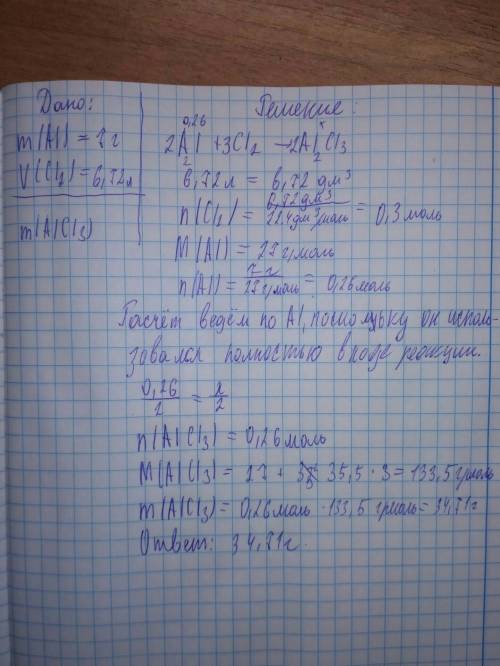 Дано:
m(Al) = 7 г
V(Cl2) = 6,72л
m(AlCl3)
Решение:
0,26 x
2Al + 3Cl2 → 2AlCl3
2 2
6,72 л = 6,72 дм³
n(Cl2) = 6,72дм³ / 22,4дм³/моль = 0,3 моль
M(Al) = 27 г/моль
n(Al) = 7г / 27 г/моль = 0,26 моль
Расчёт ведём по Al, поскольку он исполь-
зовался полностью в ходе реакции.
0,26 / 2 = x / 2
n(AlCl3) = 0,26 моль
M(AlCl3) = 27 + 35,5 · 3 = 133,5 г/моль
m(AlCl3) = 0,26 моль · 133,5 г/моль = 34,71г
Ответ: 34,71г.